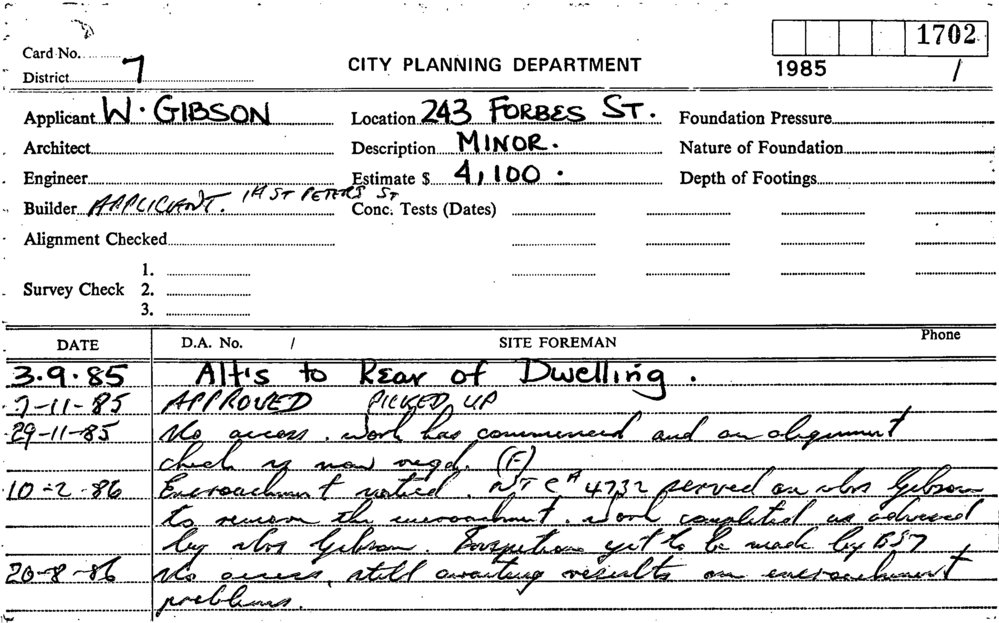 Card No.
District 7
CITY PLANNING DEPARTMENT
1702
1985 /
Applicant W. GIBSON
Location 243 FORBES ST.
Foundation Pressure
Architect
Description MINOR.
Nature of Foundation
Engineer
Estimate $ 4,100.
Depth of Footings
Builder APPLICANT. 1A ST PETERS ST
Conc. Tests (Dates)
Alignment Checked
Survey Check 1.
2.
3.
DATE D.A. No. / SITE FOREMAN Phone
3.9.85 Alt's to Rear of Dwelling.
7-11-85 APPROVED PICKED UP
29-11-85 No access. work has commenced and an alignment
check is now reqd. (F)
10-2-86 Encroachment noticed. 4732 served on Mrs Gibson
to remove the encroachment. work completed as advised
by Mrs Gibson. Inspections yet to be made by BS7
20-8-86 No access, still awaiting results on encroachment
problems.